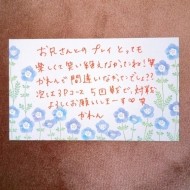 お兄さんとのプレイ とっても
楽しくて笑い絶えなかったね!笑
かれんで間違いなかったでしょ??
次は3Pコース 5回戦で、対戦
よろしくお願いしまーす♡♡
かれん